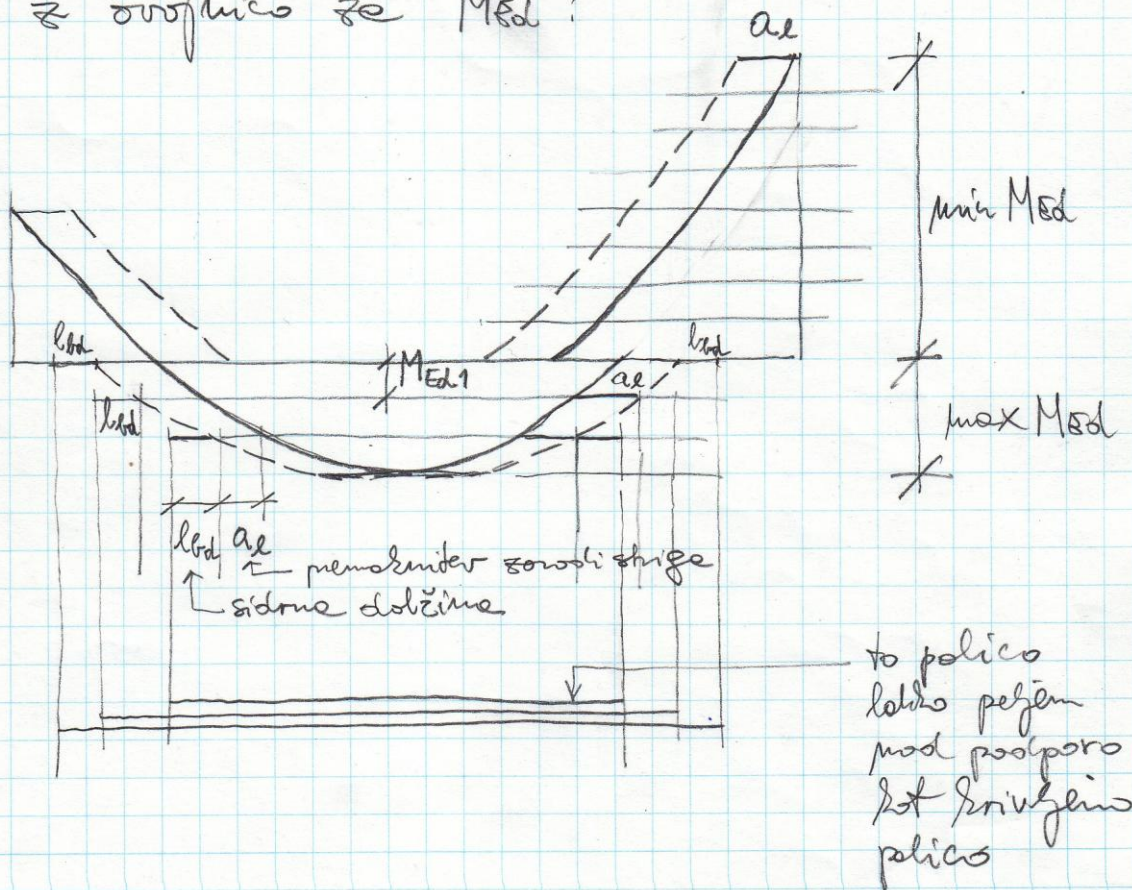 z ovojnico za MEd :
al
min MEd
lbd
MEd1
al
lbd
lbd
max MEd
lbd al
premaknitev zaradi striga
sidrna dolžina
to palico
lahko peljem
nad podporo
kot krivljeno
palico